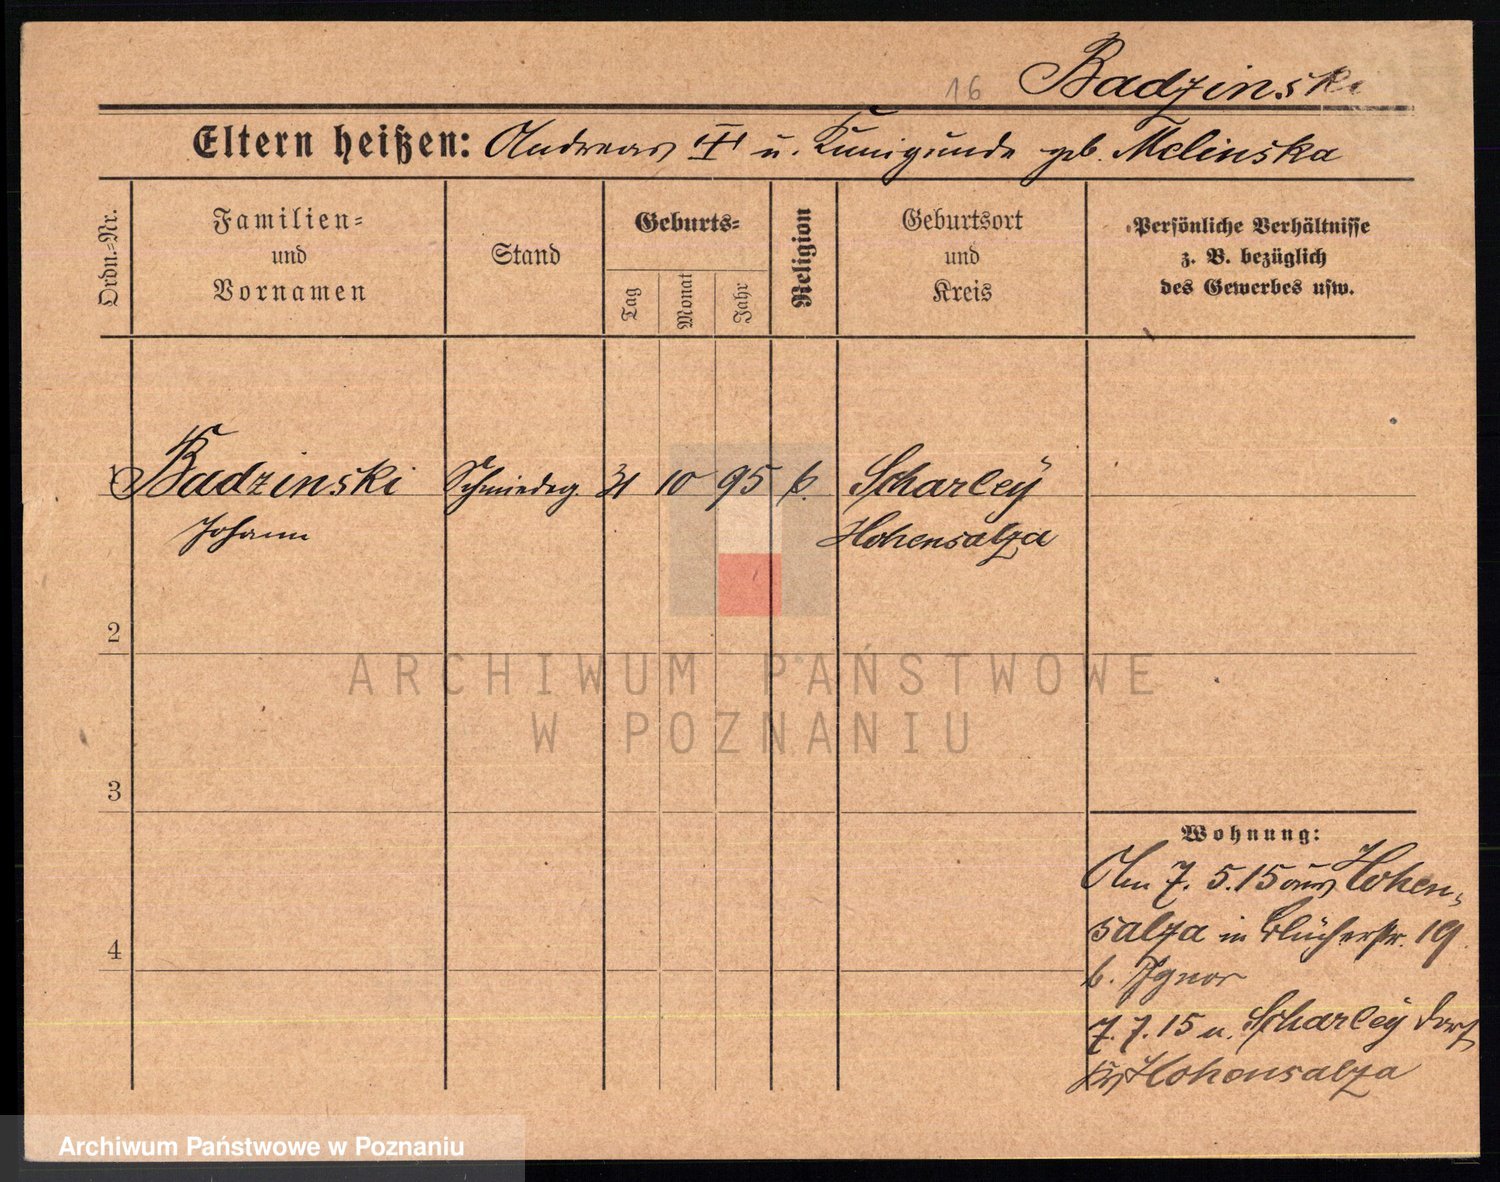 16 Badzinski
Eltern heißen: Andreas u. Kunigunde geb. Melinska
Ordn.=Nr.
Familien=
und
Vornamen
Stand
Geburts=
Tag
Monat
Jahr
Religion
Geburtsort
und
Kreis
Persönliche Verhältnisse
z. B. bezüglich
des Gewerbes usw.
1 Badzinski Schmiedeg. 31 10 95 k. Scharley
Johann Hohensalza
2
3
4
Wohnung:
Am 7. 5. 15 aus Hohen-
salza in Blücherstr. 19
b.
7. 7. 15 n. Scharley Dorf
Hohensalza
ARCHIWUM PAŃSTWOWE
W POZNANIU
Archiwum Państwowe w Poznaniu